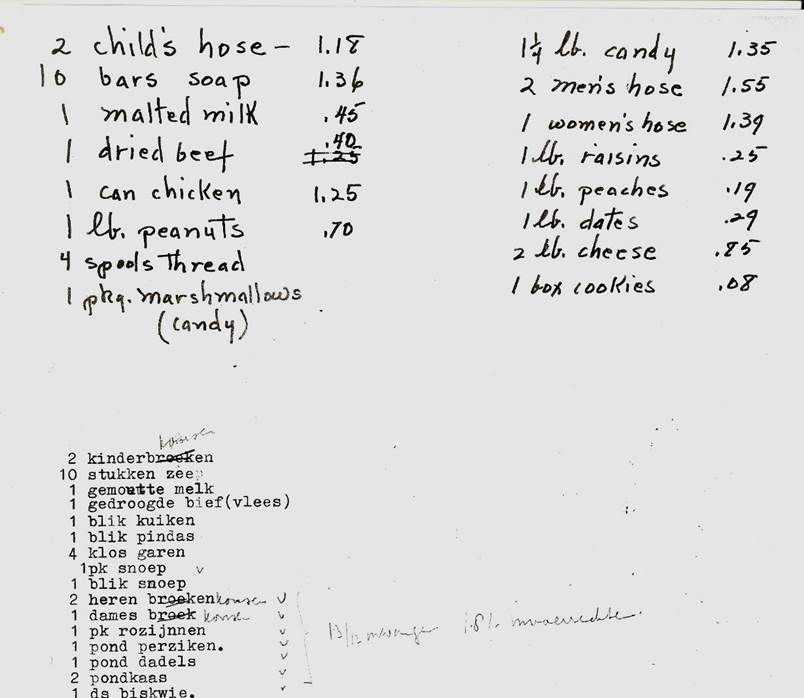 2 child's hose - 1.18
10 bars soap 1.36
1 malted milk .45
1 dried beef .40
1 can chicken 1.25
1 lb. peanuts .70
4 spools Thread
1 pkg. marshmallows
(candy)
1¼ lb. candy 1.35
2 men's hose 1.55
1 women's hose 1.39
1 lb. raisins .25
1 lb. peaches .19
1 lb. dates .29
2 lb. cheese .85
1 box cookies .08
kousen
2 kinderbroeken
10 stukken zeep
1 gemoutte melk
1 gedroogde bief(vlees)
1 blik kuiken
1 blik pindas
4 klos garen
1pk snoep v
1 blik snoep
2 heren broeken kousen v
1 dames broek kousen v
1 pk rozijnnen v
1 pond perziken. v
1 pond dadels v
2 pondkaas v
1 ds biskwie. v